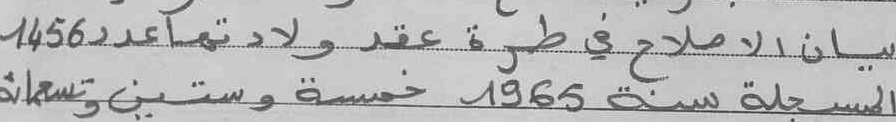 بيان الاصلاح في طرة عقد ولادتها عدد 1456
المسجلة سنة 1965 خمسة وستين وتسعمائة